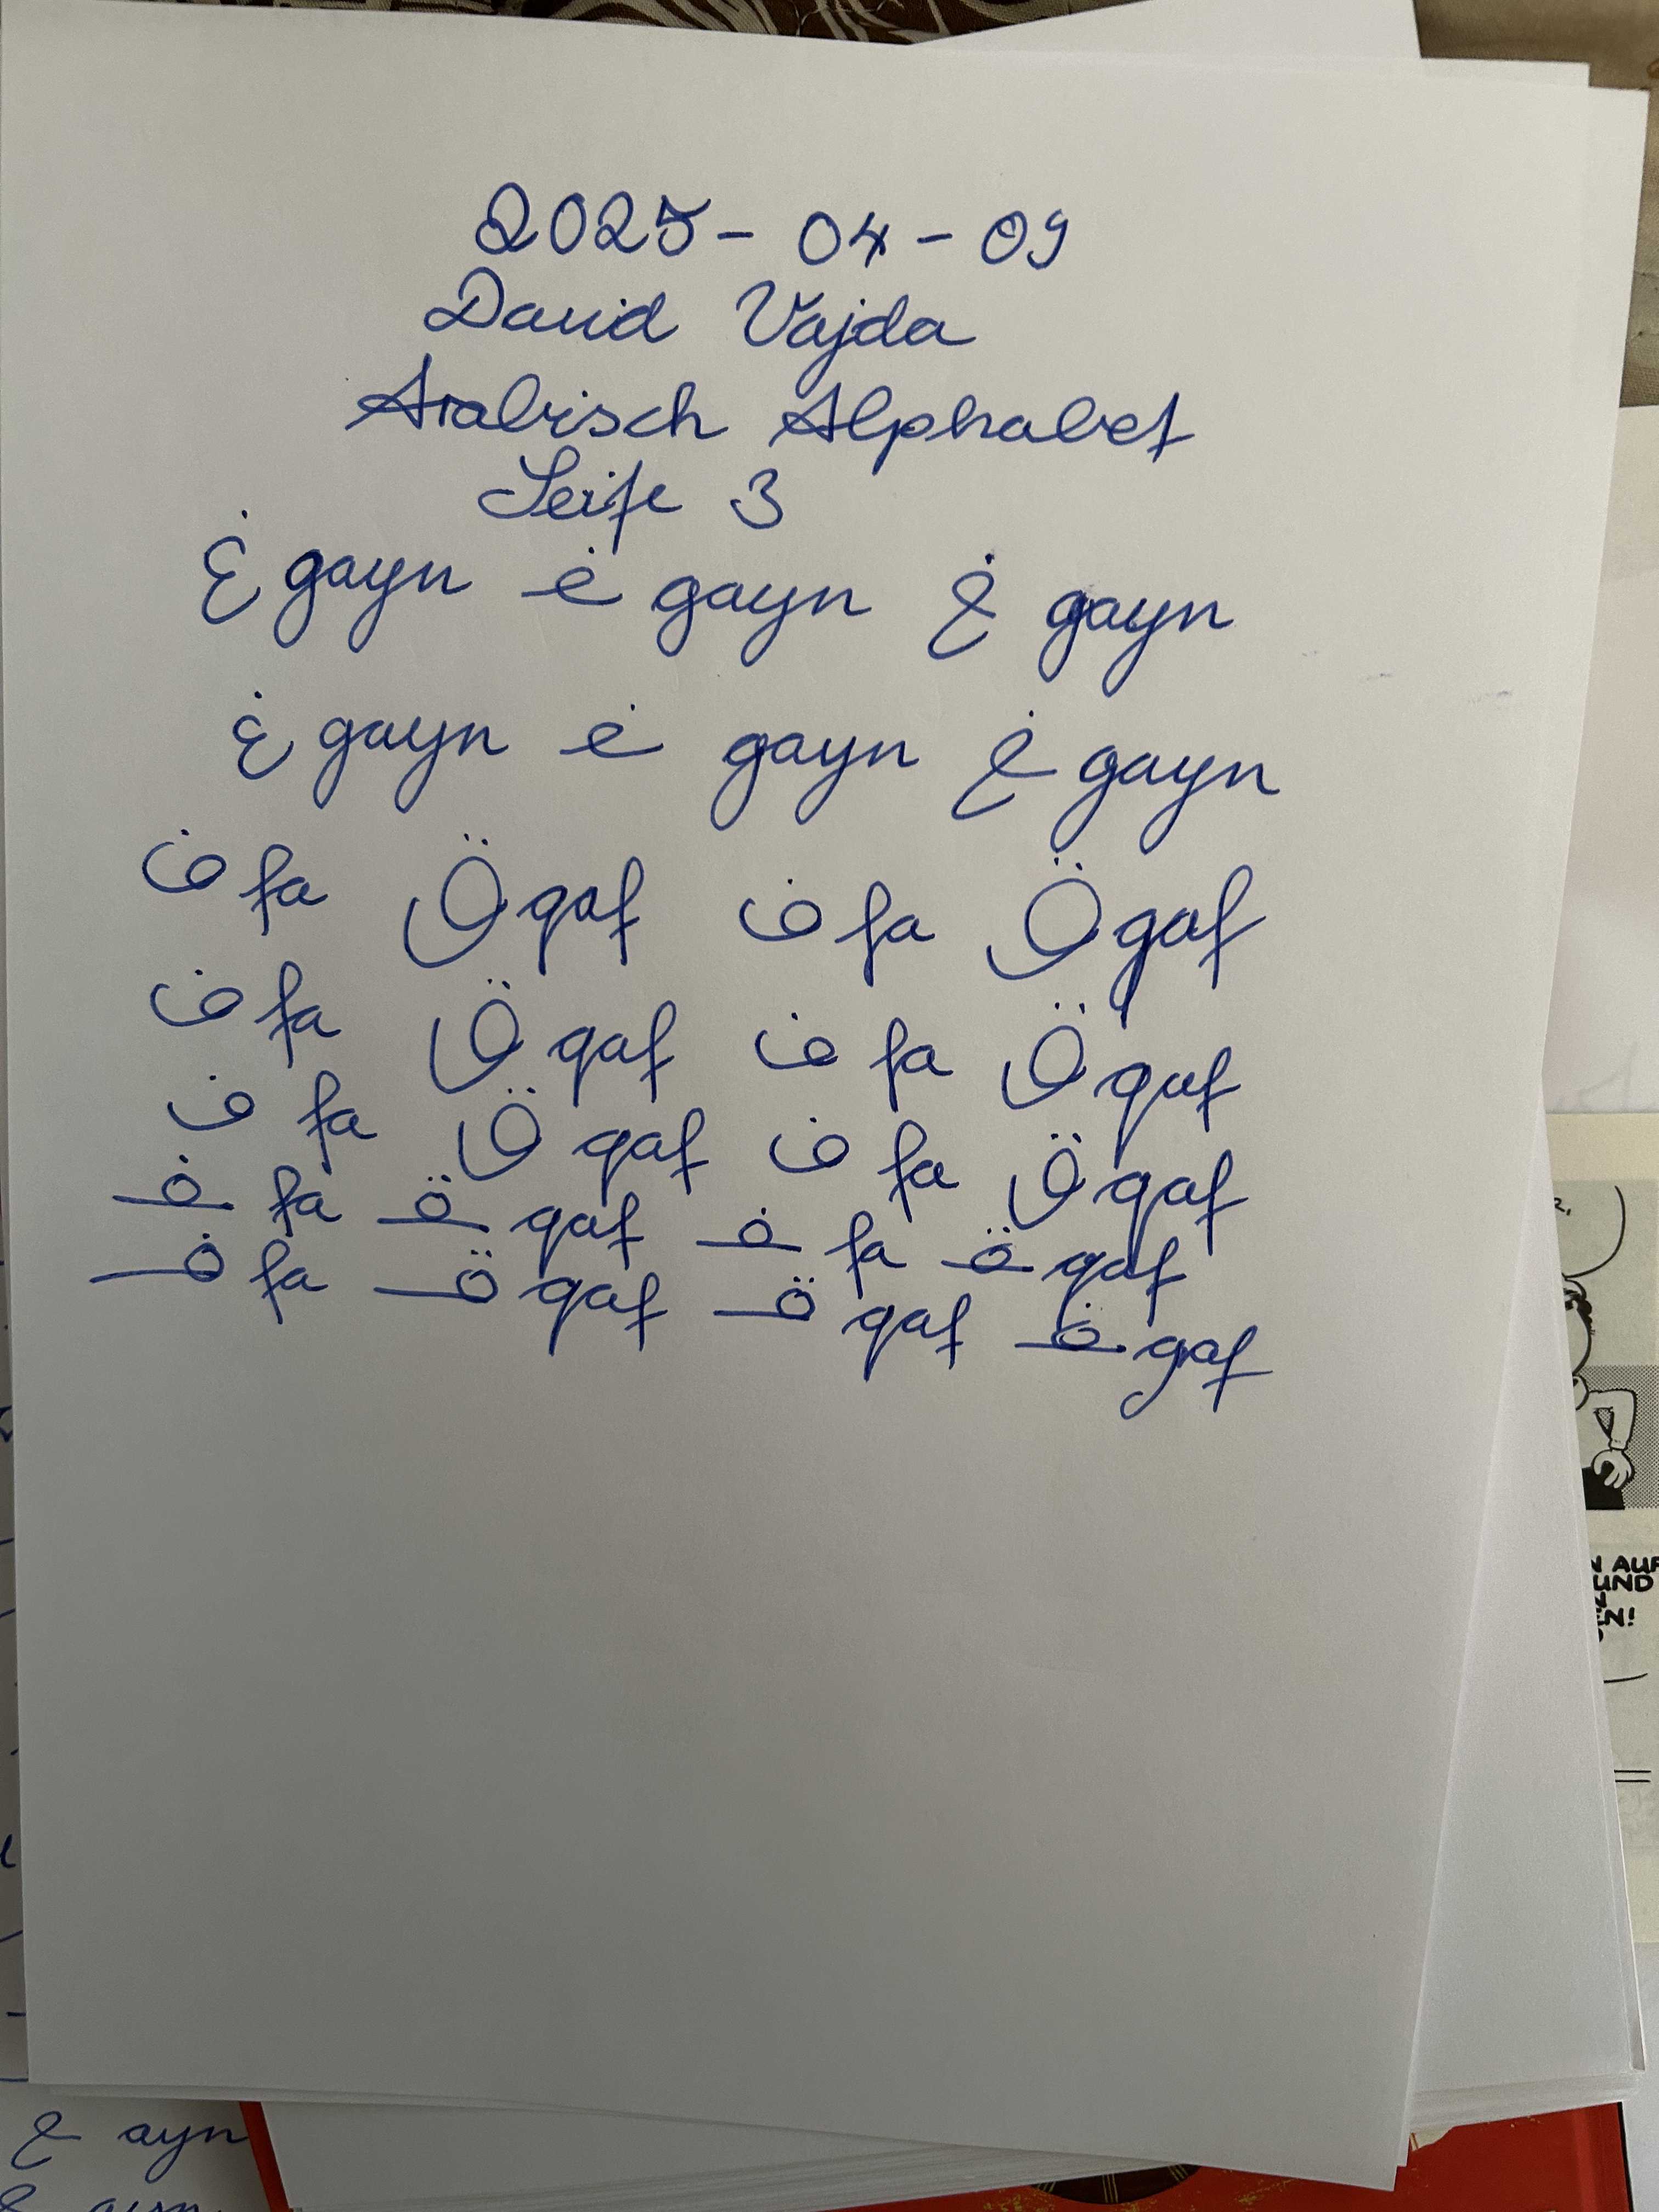 2025 - 04 - 09
David Vajda
Arabisch Alphabet
Seite 3
غ gayn غ gayn غ gayn
غ gayn غ gayn غ gayn
ف fa ق qaf ف fa ق qaf
ف fa ق qaf ف fa ق qaf
ف fa ق qaf ف fa ق qaf
ـفـ fa ـقـ qaf ـفـ fa ـقـ qaf
فـ fa قـ qaf قـ qaf ـقـ qaf
N AUF
UND
N
EN!
ع ayn